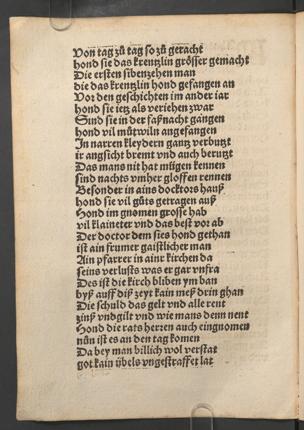 Von tag zů tag so zů geracht
hond sie das krentzlin grösser gemacht
Die ersten sibenzehen man
die das krentzlin hond gefangen an
Vor den geschichten im ander iar
hond sie ietz als veriehen zwar
Sind sie in der faßnacht gangen
hond vil můtwiln angefangen
In narren kleydern gantz verbutzt
ir angsicht bremt vnd auch berutzt
Das mans nit hat mügen kennen
sind nachts vmher gloffen rennen
Besonder in ains docktors hauß
hond sie vil gůts getragen auß
Hond im gnomen grosse hab
vil klaineter vnd das best vor ab
Der doctor dem sies hond gethan
ist ain frumer gaistlicher man
Ain pfarrer in ainr kirchen da
seins verlusts was er gar vnfra
Des ist die kirch bliben ym ban
byß auff diß zeyt kain meß drin ghan
Die schuld das gelt vnd alle rent
zinß vnd gilt vnd wie mans denn nent
Hond die rats herren auch eingnomen
nůn ist es an den tag komen
Da bey man billich wol verstat
got kain übels vngestraffet lat